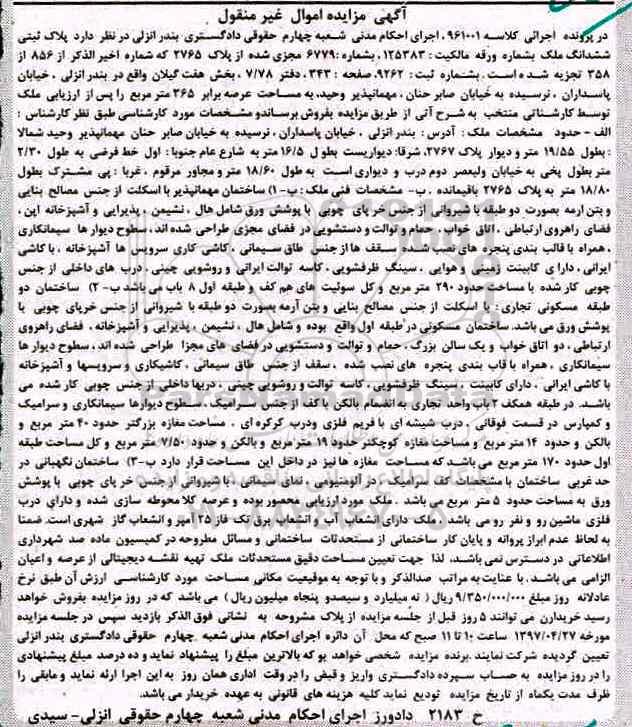 آگهی مزایده اموال غیر منقول
در پرونده اجرائی کلاسه ۹۶۱۰۰۱، اجرای احکام مدنی شعبه چهارم حقوقی دادگستری بندر انزلی در نظر دارد پلاک ثبتی
ششدانگ ملک بشماره ورقه مالکیت: ۱۲۵۳۸۳، بشماره: ۶۷۷۹ مجزی شده از پلاک ۲۷۶۵ که شماره اخیر الذکر از ۸۵۶ از
۳۵۸ تجزیه شده است. بشماره ثبت: ۹۲۶۲، صفحه: ۳۴۳، دفتر ۷/۷۸، بخش هفت گیلان واقع در بندر انزلی، خیابان
پاسداران، نرسیده به خیابان صابر حنان، مهمانپذیر وحید، به مساحت عرصه برابر ۳۶۵ متر مربع را پس از ارزیابی ملک
توسط کارشناسی منتخب به شرح آتی از طریق مزایده بفروش برساند و مشخصات مورد کارشناسی طبق نظر کارشناس:
الف - حدود مشخصات ملک: آدرس: بندر انزلی، خیابان پاسداران، نرسیده به خیابان صابر حنان مهمانپذیر وحید شمالا
: بطول ۱۹/۵۵ متر و دیوار پلاک ۲۷۶۷، شرقا: دیواریست بطول ۱۶/۵ متر به شارع عام جنوبا: اول خط فرضی به طول ۲/۳۰
متر بطول پخی به خیابان ولیعصر دوم درب و دیواری است به طول ۱۸/۶۰ متر و مجاور مرقوم، غربا: پی مشترک بطول
۱۸/۸۰ متر به پلاک ۲۷۶۵ باقیمانده. ب- مشخصات فنی ملک: ب-۱) ساختمان مهمانپذیر با اسکلت از جنس مصالح بنایی
و بتن آرمه بصورت دو طبقه با شیروانی از جنس خرپای چوبی با پوشش ورق شامل هال، نشیمن، پذیرایی و آشپزخانه اپن،
فضای راهروی ارتباطی، اتاق خواب، حمام و توالت و دستشویی در فضای مجزی طراحی شده اند، سطوح دیوار ها سیمانکاری
، همراه با قالب بندی پنجره های نصب شده سقف ها از جنس طاق سیمانی، کاشی کاری سرویس ها آشپزخانه، با کاشی
ایرانی، دارای کابینت زمینی و هوایی، سینگ ظرفشویی، کاسه توالت ایرانی و روشویی چینی، درب های داخلی از جنس
چوبی کار شده با مساحت حدود ۲۹۰ متر مربع و کل سوئیت های هم کف و طبقه اول ۸ باب می باشد ب- ۲) ساختمان دو
طبقه مسکونی تجاری: با اسکلت از جنس مصالح بنایی و بتن آرمه بصورت دو طبقه با شیروانی از جنس خرپای چوبی با
پوشش ورق می باشد. ساختمان مسکونی در طبقه اول واقع بوده و شامل هال، نشیمن، پذیرایی و آشپزخانه، فضای راهروی
ارتباطی، دو اتاق خواب و یک سالن بزرگ، حمام و توالت و دستشویی در فضای های مجزا طراحی شده اند، سطوح دیوار ها
سیمانکاری، همراه با قاب بندی پنجره های نصب شده، سقف از جنس طاق سیمانی، کاشیکاری و سرویسها و آشپزخانه
با کاشی ایرانی، دارای کابینت، سینگ ظرفشویی، کاسه توالت و روشویی چینی، دربها داخلی از جنس چوبی کار شده می
باشد. در طبقه همکف ۲ باب واحد تجاری به انضمام بالکن با کف از جنس سرامیک، سطوح دیوارها سیمانکاری و سرامیک
و کمپارس در قسمت فوقانی، درب شیشه ای با فریم فلزی و درب کرکره ای. مساحت مغازه بزرگتر حدود ۴۰ متر مربع و
بالکن و حدود ۱۴ متر مربع و مساحت مغازه کوچکتر حدود ۱۹ متر مربع و بالکن و حدود ۷/۵۰ متر مربع و کل مساحت طبقه
اول حدود ۱۷۰ متر مربع می باشد که مساحت مغازه ها نیز در داخل این مساحت قرار دارد ب-۳) ساختمان نگهبانی در
حد غربی ساختمان با مشخصات کف سرامیک، در آلومینومی، نمای سیمانی با شیروانی از جنس خرپای چوبی با پوشش
ورق به مساحت حدود ۵ متر مربع می باشد. ملک مورد ارزیابی محصور بوده و عرصه کلا محوطه سازی شده و دارای درب
فلزی ماشین رو و نفر رو می باشد. ملک دارای انشعاب آب و انشعاب برق تک فاز ۲۵ آمپر و انشعاب گاز شهری است. ضمنا
به لحاظ عدم ابراز پروانه و پایان کار ساختمانی از مستحدثات ساختمانی و مسائل مطروحه در کمیسیون ماده صد شهرداری
اطلاعاتی در دسترس نمی باشد، لذا جهت تعیین مساحت دقیق مستحدثات ملک تهیه نقشه دیجیتالی از عرصه و اعیان
الزامی می باشد. با عنایت به مراتب صدالذکر و با توجه به موقعیت مکانی مساحت مورد کارشناسی ارزش آن طبق نرخ
عادلانه روز مبلغ ۹/۳۵۰/۰۰۰/۰۰۰ ریال (نه میلیارد و سیصدو پنجاه میلیون ریال) می باشد که در روز مزایده بفروش خواهد
رسید خریداران می توانند ۵ روز قبل از جلسه مزایده از پلاک مشروحه به نشانی فوق الذکر بازدید سپس در جلسه مزایده
مورخه ۱۳۹۷/۰۴/۲۷ ساعت ۱۰ تا ۱۱ صبح که محل آن دائره اجرای احکام مدنی شعبه چهارم حقوقی دادگستری بندر انزلی
تعیین گردیده شرکت نمایند. برنده مزایده شخصی خواهد بو که بالاترین مبلغ را پیشنهاد نماید و ده درصد مبلغ پیشنهادی
را در روز مزایده به حساب سپرده دادگستری واریز و قبض را در وقت اداری همان روز به این اجرا ارئه نماید و مابقی را
ظرف مدت یکماه از تاریخ مزایده تودیع نماید کلیه هزینه های قانونی به عهده خریدار می باشد.
ح ۲۱۸۳ دادورز اجرای احکام مدنی شعبه چهارم حقوقی انزلی- سیدی